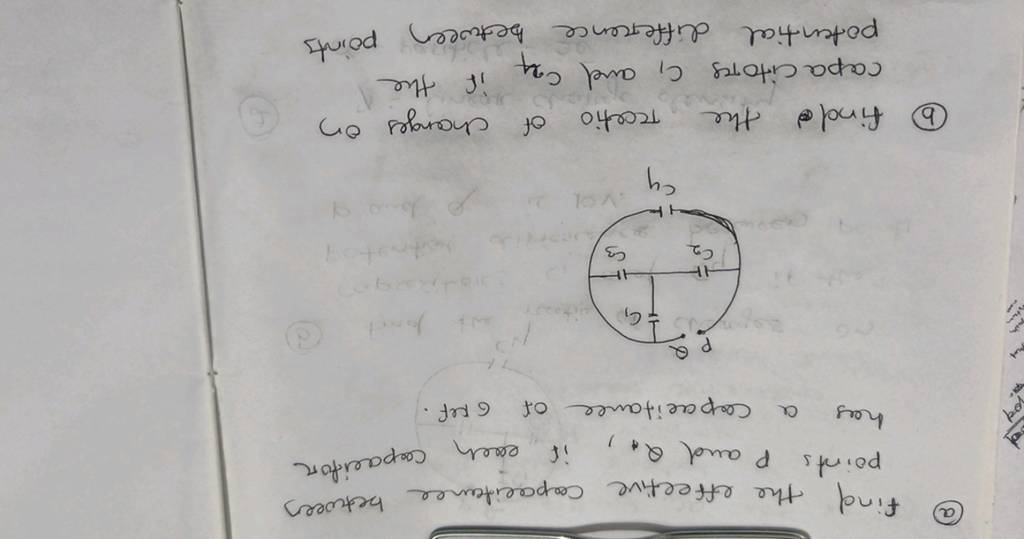 ⓐ find the effective capacitance between
points P and Q, if each capacitor
has a capacitance of 6 μF.
P Q
C1
C2 C3
C4
ⓑ find the ratio of charges on
capacitors C1 and C4 if the
potential difference between points